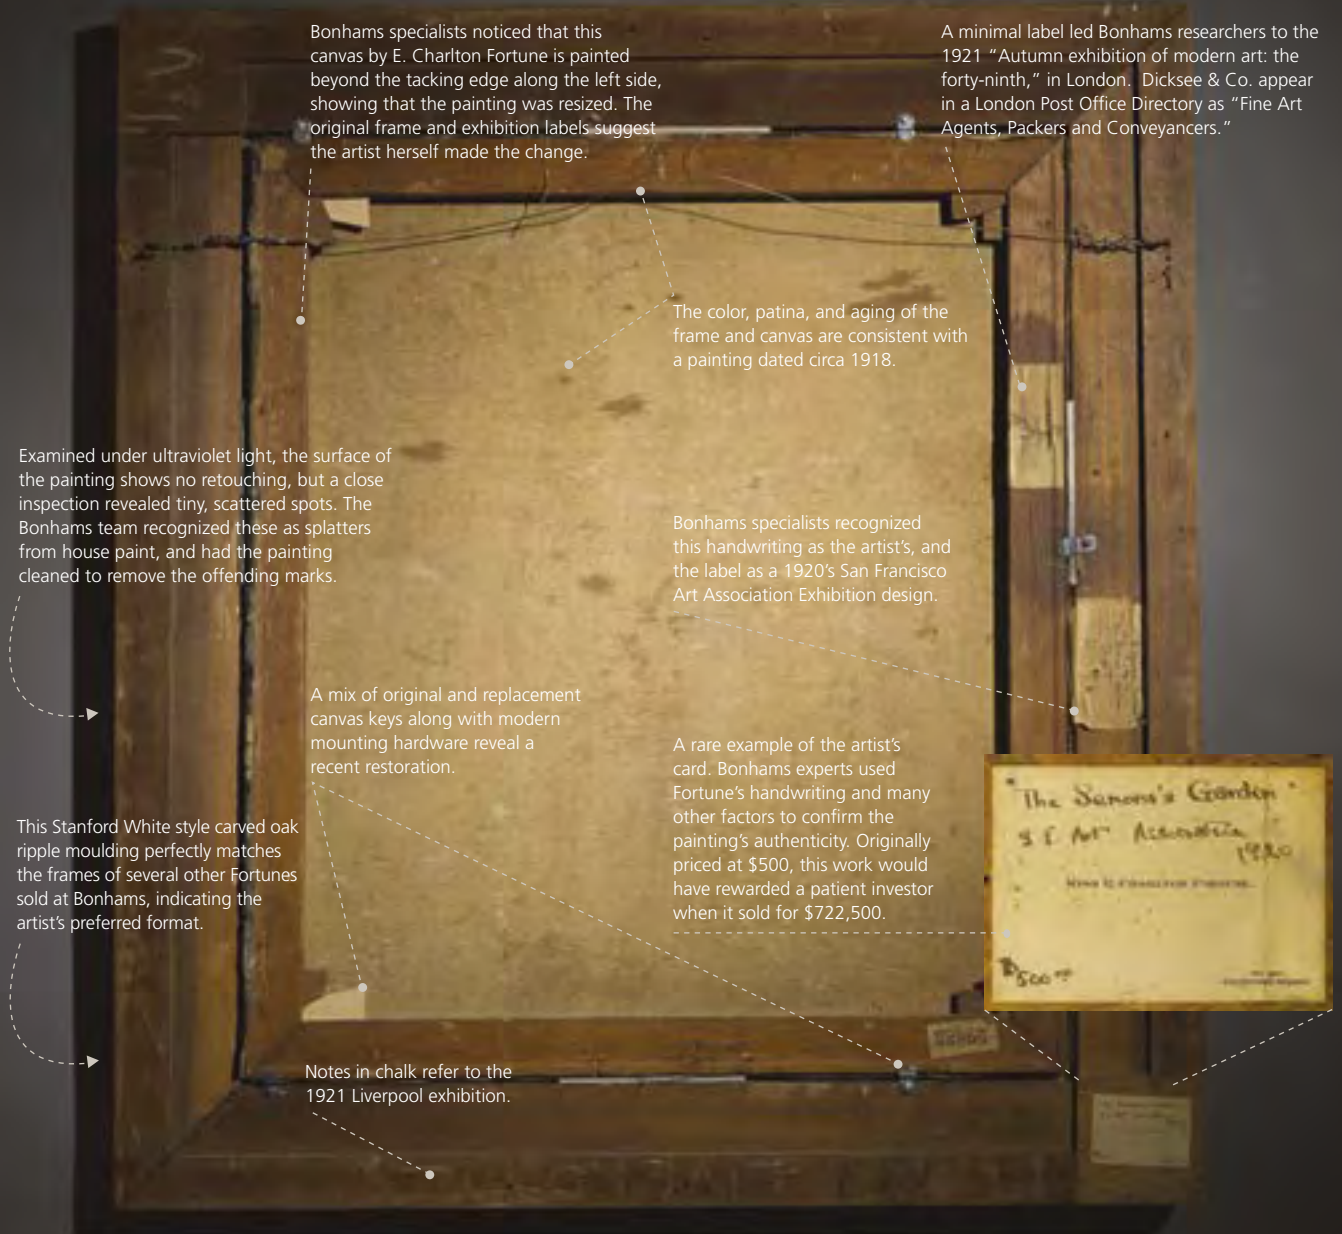 Bonhams specialists noticed that this
canvas by E. Charlton Fortune is painted
beyond the tacking edge along the left side,
showing that the painting was resized. The
original frame and exhibition labels suggest
the artist herself made the change.
A minimal label led Bonhams researchers to the
1921 “Autumn exhibition of modern art: the
forty-ninth,” in London. Dicksee & Co. appear
in a London Post Office Directory as “Fine Art
Agents, Packers and Conveyancers.”
The color, patina, and aging of the
frame and canvas are consistent with
a painting dated circa 1918.
Examined under ultraviolet light, the surface of
the painting shows no retouching, but a close
inspection revealed tiny, scattered spots. The
Bonhams team recognized these as splatters
from house paint, and had the painting
cleaned to remove the offending marks.
Bonhams specialists recognized
this handwriting as the artist’s, and
the label as a 1920’s San Francisco
Art Association Exhibition design.
A mix of original and replacement
canvas keys along with modern
mounting hardware reveal a
recent restoration.
A rare example of the artist’s
card. Bonhams experts used
Fortune’s handwriting and many
other factors to confirm the
painting’s authenticity. Originally
priced at $500, this work would
have rewarded a patient investor
when it sold for $722,500.
This Stanford White style carved oak
ripple moulding perfectly matches
the frames of several other Fortunes
sold at Bonhams, indicating the
artist’s preferred format.
Notes in chalk refer to the
1921 Liverpool exhibition.
"The Garden"
S F Art Association
1920
$500